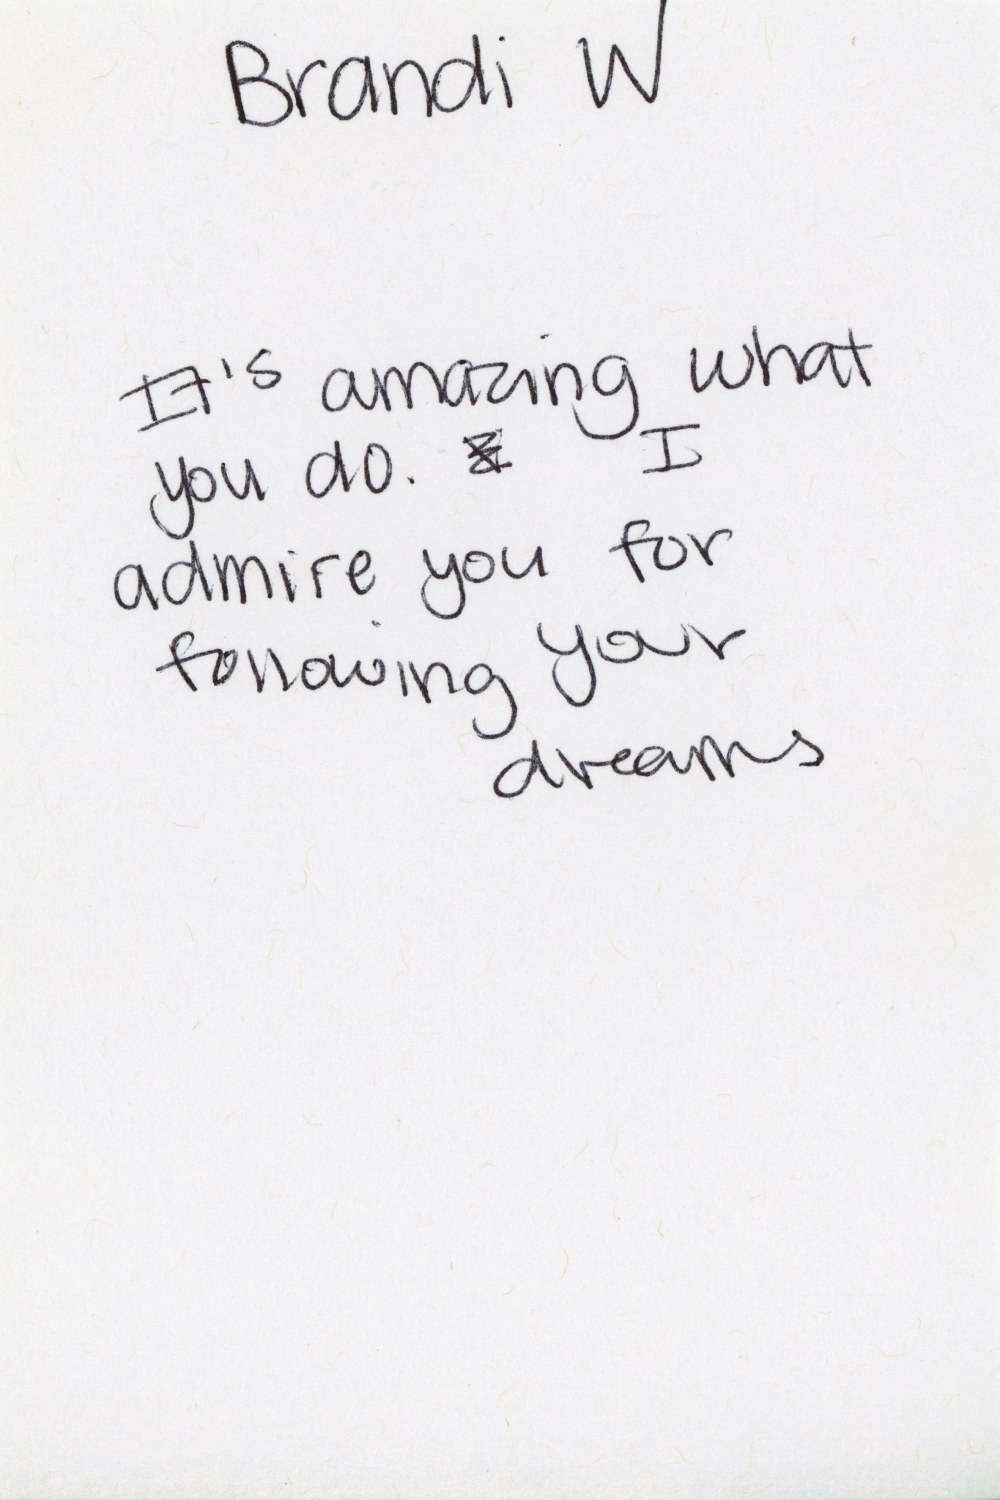 Brandi W
It's amazing what
you do. I
admire you for
following your
dreams